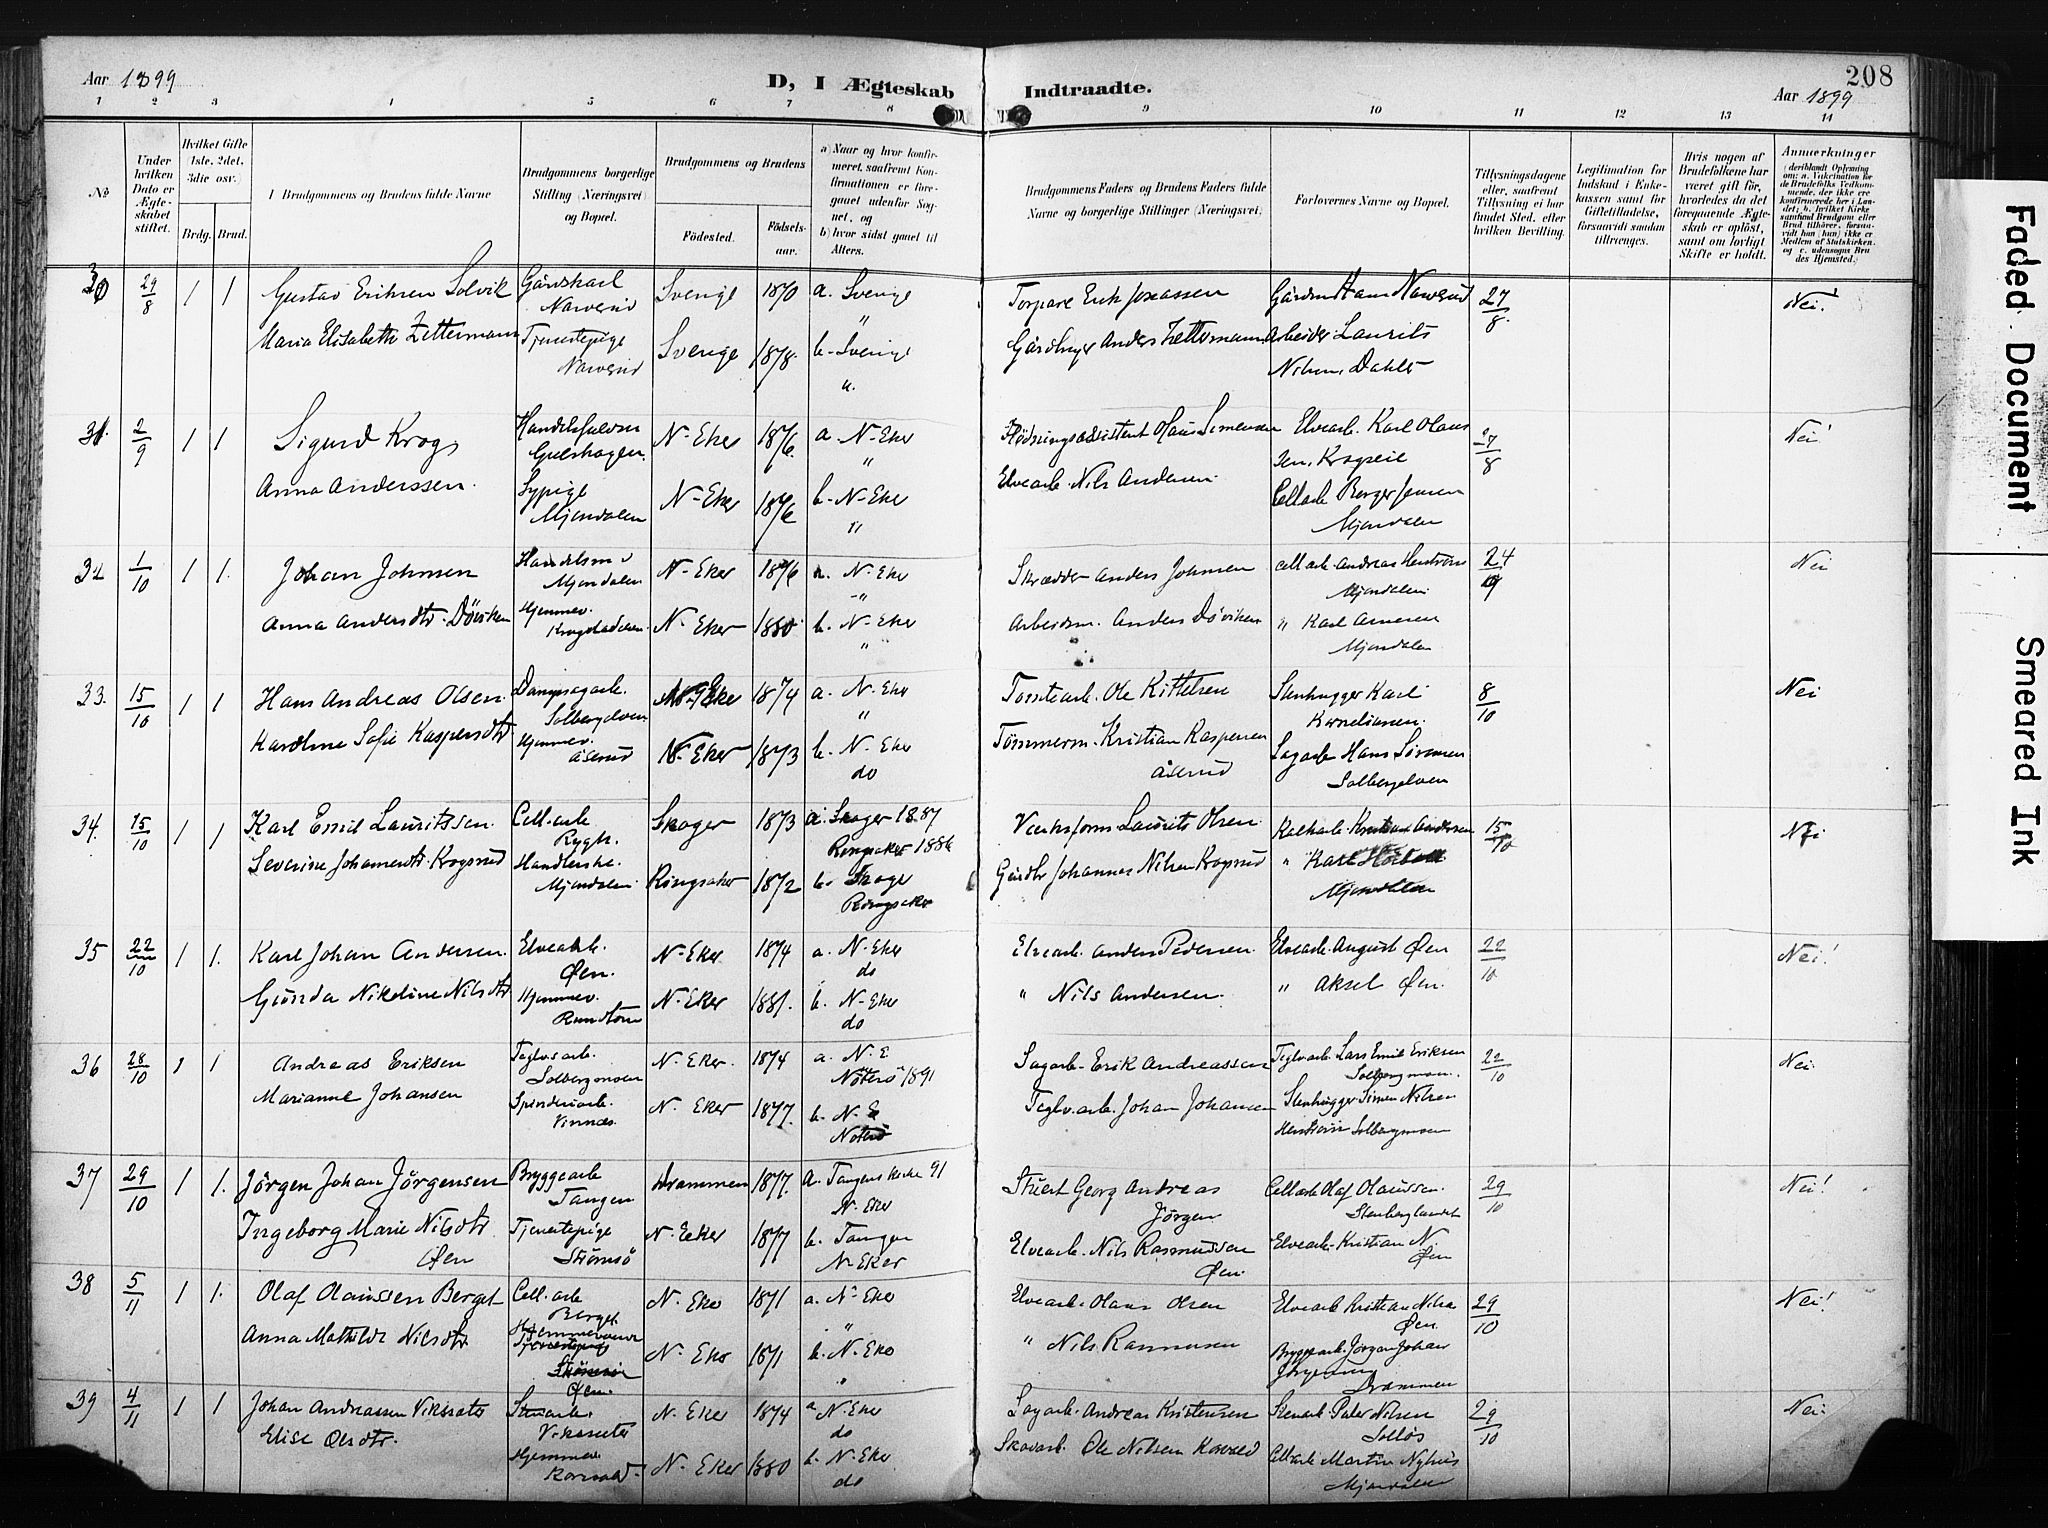 Aar 1899
D, I Ægteskab Indtraadte.
Aar 1899
208
1 2 3 4 5 6 7 8 9 10 11 12 13 14
No
Under hvilken Dato er Ægteskabet stiftet.
Hvilket Gifte (1ste, 2det, 3die osv.)
Brdg. Brud.
I Brudgommens og Brudens fulde Navne
Brudgommens borgerlige Stilling (Næringsvei) og Bopæl.
Brudgommens og Brudens
Fødested.
Fødselsaar.
a) Naar og hvor konfirmeret, saafremt Konfirmationen er foregaaet udenfor Sognet, og
b) hvor sidst gaaet til Alters.
Brudgommens Faders og Brudens Faders fulde Navne og borgerlige Stillinger (Næringsvei)
Forlovernes Navne og Bopæl.
Tillysningsdagene eller, saafremt Tillysning ei har fundet Sted, efter hvilken Bevilling.
Legitimation for Indskud i Enkekassen samt for Giftetilladelse, forsaavidt saadan tiltrænges.
Hvis nogen af Brudefolkene har været gift før, hvorledes da det foregaaende Ægteskab er opløst, samt om lovligt Skifte er holdt.
Anmerkninger
30 29/8 1 1 Gustav Eriksen Solvik Gårdskarl Narverud Sverige 1870 a. Sverige " Torpare Erik Jonassen Gårdm Hans Narverud 27/8 Nei!
Maria Elisabeth Zettermann Tjenestepige Narverud Sverige 1878 b. Sverige " Anders Zettermann Arbeider Laurits Nilsen, Dahler
31. 2/9 1 1 Sigurd Krog N-Eker 1876 a. N-Eker " Elvearb. Karl Olaus 27/8 Nei!
Anna Anderssen. Sypige Mjøndalen N-Eker 1876 b. N-Eker " Elvearb. Nils Andersen. Cellarb Berger Jensen Mjøndalen
32 1/10 1 1. Johan Johnsen Handelsm Mjøndalen N-Eker 1876 a. N-Eker " Skrædder Anders Johnsen Cellarb. Andreas Mjøndalen 24/9 Nei
Anna Andersdtr. Døviken Hjemmev. N-Eker 1880 b. N-Eker " Arbeidsm. Anders Døviken " Karl Arnesen Mjøndalen
33. 15/10 1 1 Hans Andreas Olsen Dampsagarb. Solbergelven N-Eker 1874 a. N-Eker " Tomtearb. Ole Kittelsen Stenhugger Karl Korneliussen. 8/10 Nei
Karoline Sofie Kaspersdtr Hjemmev. Åserud N-Eker 1873 b. N-Eker do Tømmerm. Kristian Kaspersen Åserud Sagarb Hans Sørensen Solbergelven
34. 15/10 1 1 Karl Emil Lauritssen. Cell.arb Rygh. Skoger 1873 a. Skoger 1887 Ringsaker 1886 Værksform Laurits Olsen Andersen 15/10 Nei
Severine Johannesdtr. Kogsrud Handlerske. Mjøndalen Ringsaker 1872 b. Skoger Ringsaker Johannes Nilsen Kogsrud " Karl Mjøndalen
35 22/10 1 1. Karl Johan Andersen. Elvearb. Øen. N-Eker 1874 a. N-Eker do Elvearb. Anders Pedersen. Elvearb. August Øen 22/10 Nei!
Gunda Nikoline Nilsdtr Hjemmev. Rundtom N-Eker 1881. b. N-Eker do " Nils Andersen. " Aksel Øen.
36 28/10 1 1 Andreas Eriksen Teglv.arb. Solbergmoen N-Eker. 1874 a. N.E Nøtterø 1891 Sagarb. Erik Andreassen Teglv.arb Lars Emil Eriksen Solbergmoen. 22/10 Nei
Marianne Johansen Spinderiarb. Vinnes. N. Eker 1877. b. N. E Nøtterø Teglv.arb. Johan Johansen Stenhugger Simen Nilsen Solbergmoen
37 29/10 1 1. Jørgen Johan Jørgensen Bryggearb Tangen Drammen 1877. a. Tangens kirke 91 N. Eker Stuert Georg Andreas Jørgen Cellarb Olaf Olaussen. Stenberglandet 29/10 Nei!
Ingeborg Marie Nilsdtr Øen Tjenestepige Strømsø N. Eeker 1877 b. Tangen N-Eker Elvearb. Nils Rasmussen Øen. Elvearb. Kristian N. Øen
38 5/11 1 1. Olaf Olaussen Berget Cell.arb Berget N-Eker 1871 a. N-Eker " Elvearb. Olaus Olsen Elvearb Kristian Nilsen Øen 29/10 Nei!
Anna Mathilde Nilsdtr Hjemmeværende Tjenestepige Strømsø Øen. N-Eker 1871 b. N-Eker " " Nils Rasmussen Bryggearb. Jørgen Johan Jørgensen Drammen
39 4/11 1 1 Johan Andreassen Vikseter Vikseter N. Eker 1874 a N. Eker do Sagarb. Andreas Kristensen Stenarb. Peter Nilsen Solløs 29/10 Nei.
Elise Olsdtr. Hjemmev. Korsvold. N. Eker 1880 b. N-Eker do Skovarb. Ole Nilsen Korsvold Cellarb Martin Nyhus Mjøndalen
Faded Document
Smeared Ink